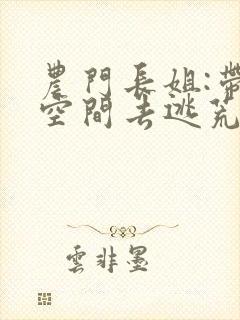 農門長姐:帶
空間去逃荒
雲非墨